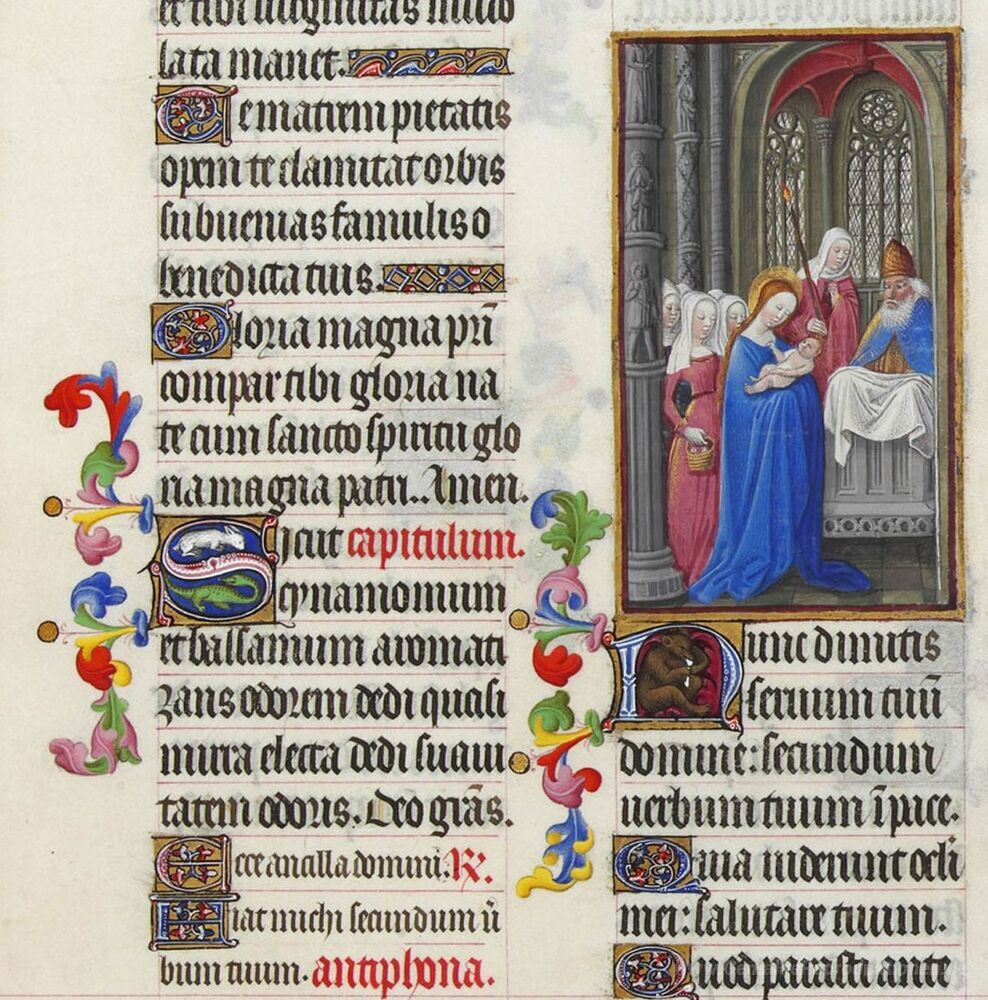 et tibi virginitas inuio
lata manet.
Te matrem pietatis
opem te clamitat orbis
subuenias famulis o
benedicta tuis.
Gloria magna pri
compar tibi gloria na
te cum sancto spiritu glo
ria magna patri. Amen.
Sicut capitulum.
cynamomum
et balsamum aromati
zans odorem dedi quasi
mirra electa dedi suaui
tatem odoris. Deo gras.
Ecce ancilla domini. R.
Fiat michi secundum u
bum tuum. antiphona.
Nunc dimittis
seruum tuū
domine: secundum
uerbum tuum ī pace.
Quia uiderunt oculi
mei: salutare tuum.
Quod parasti ante